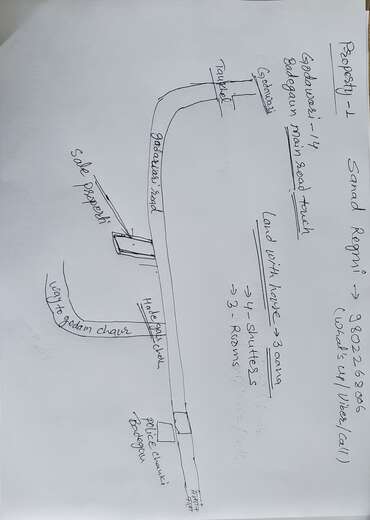 Property-1
Sanad Regmi → 9802268006
(What's up/Viber/call)
Godawari-14
Badegaun main road touch
Land with house → 3 aana
→ 4-shutters
→ 3-Rooms
Godawari
Taukhel
godawari road
Sale properti
Hadegau chok
way to godam chaur
police chauki
Badegaun